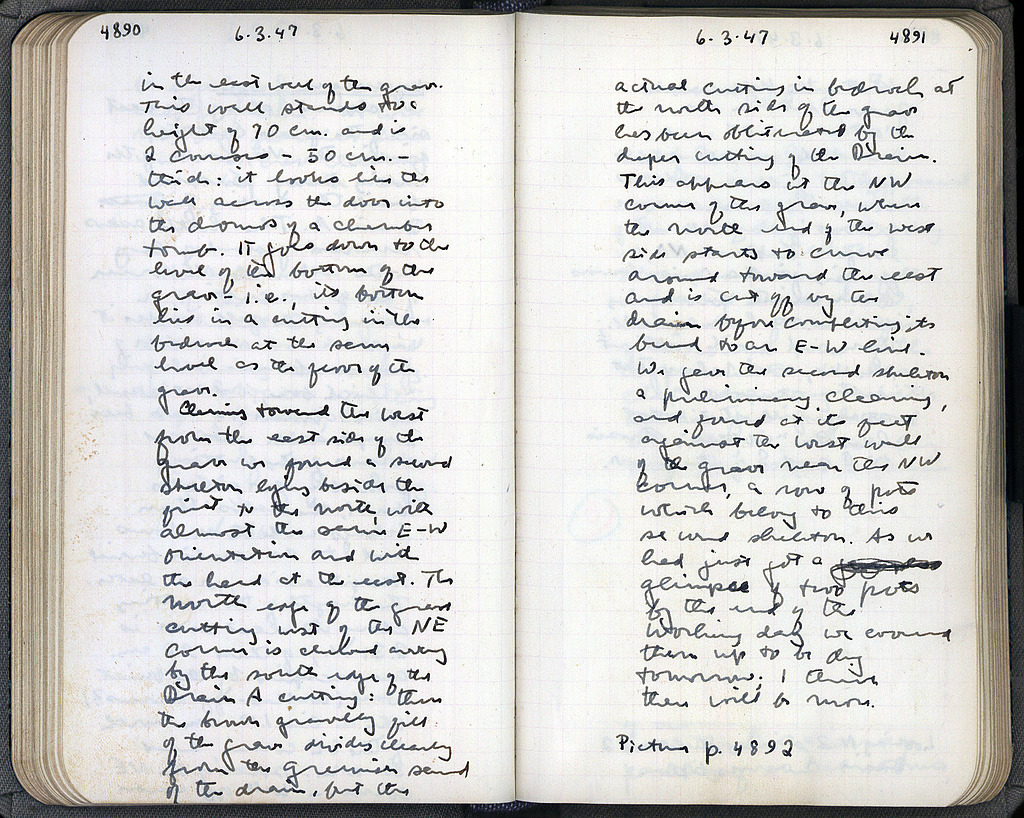 4890
6.3.47
in the east wall of the grave.
This wall stands to a
height of 70 cm. and is
2 courses – 50 cm. –
thick: it looks like the
wall across the door into
the dromos of a chamber
tomb. It goes down to the
level of the bottom of the
grave – i.e., its bottom
lies in a cutting in the
bedrock at the same
level as the floor of the
grave.
Cleaning toward the west
from the east side of the
grave we found a second
skeleton lying beside the
first to the north, with
almost the same E-W
orientation and with
the head at the east. The
north edge of the grave
cutting west of the NE
corner is chewed away
by the south edge of the
Drain A cutting: then
the brown gravelly fill
of the grave divides clearly
from the greenish sand
of the drain, but the
6.3.47
4891
actual cutting in bedrock at
the north side of the grave
has been obliterated by the
deeper cutting of the Drain.
This appears at the NW
corner of the grave, where
the north end of the west
side starts to curve
around toward the east
and is cut off by the
drain before completing its
bend to an E-W line.
We gave the second skeleton
a preliminary cleaning,
and found at its feet
against the west wall
of the grave near the NW
corner, a row of pots
which belong to this
second skeleton. As we
had just got a
glimpse of two pots
by the end of the
working day we covered
them up to be dug
tomorrow. I think
there will be more.
Picture p. 4892